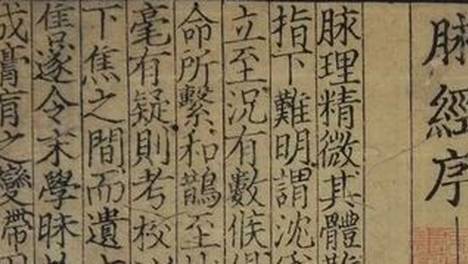 脉經序
脉理精微其體
指下難明謂沈
立至況有數候俱
命所繫和鵲至
毫有疑則考校以
下焦之間而遺
遂令末學昧
成膏肓之變